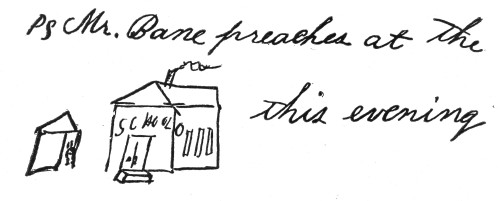 Ps Mr. Bane preaches at the
SCHOOL
this evening